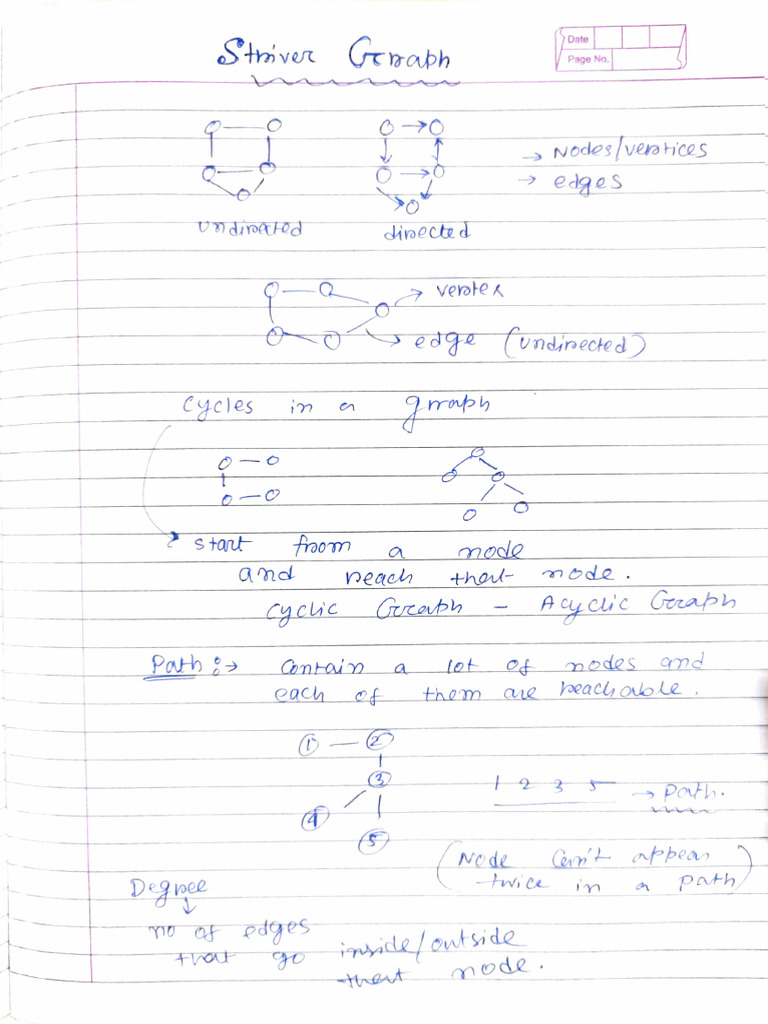 Striver Graph
Date
Page No.
→ Nodes/vertices
→ edges
undirected
directed
→ vertex
→ edge (undirected)
cycles in a graph
start from a node
and reach that node.
cyclic Graph - Acyclic Graph
Path :→ Contain a lot of nodes and
each of them are reachable.
1 2
3
4
5
1 2 3 5 → Path.
(Node can't appear
twice in a path)
Degree
no of edges
that go inside/outside
that node.